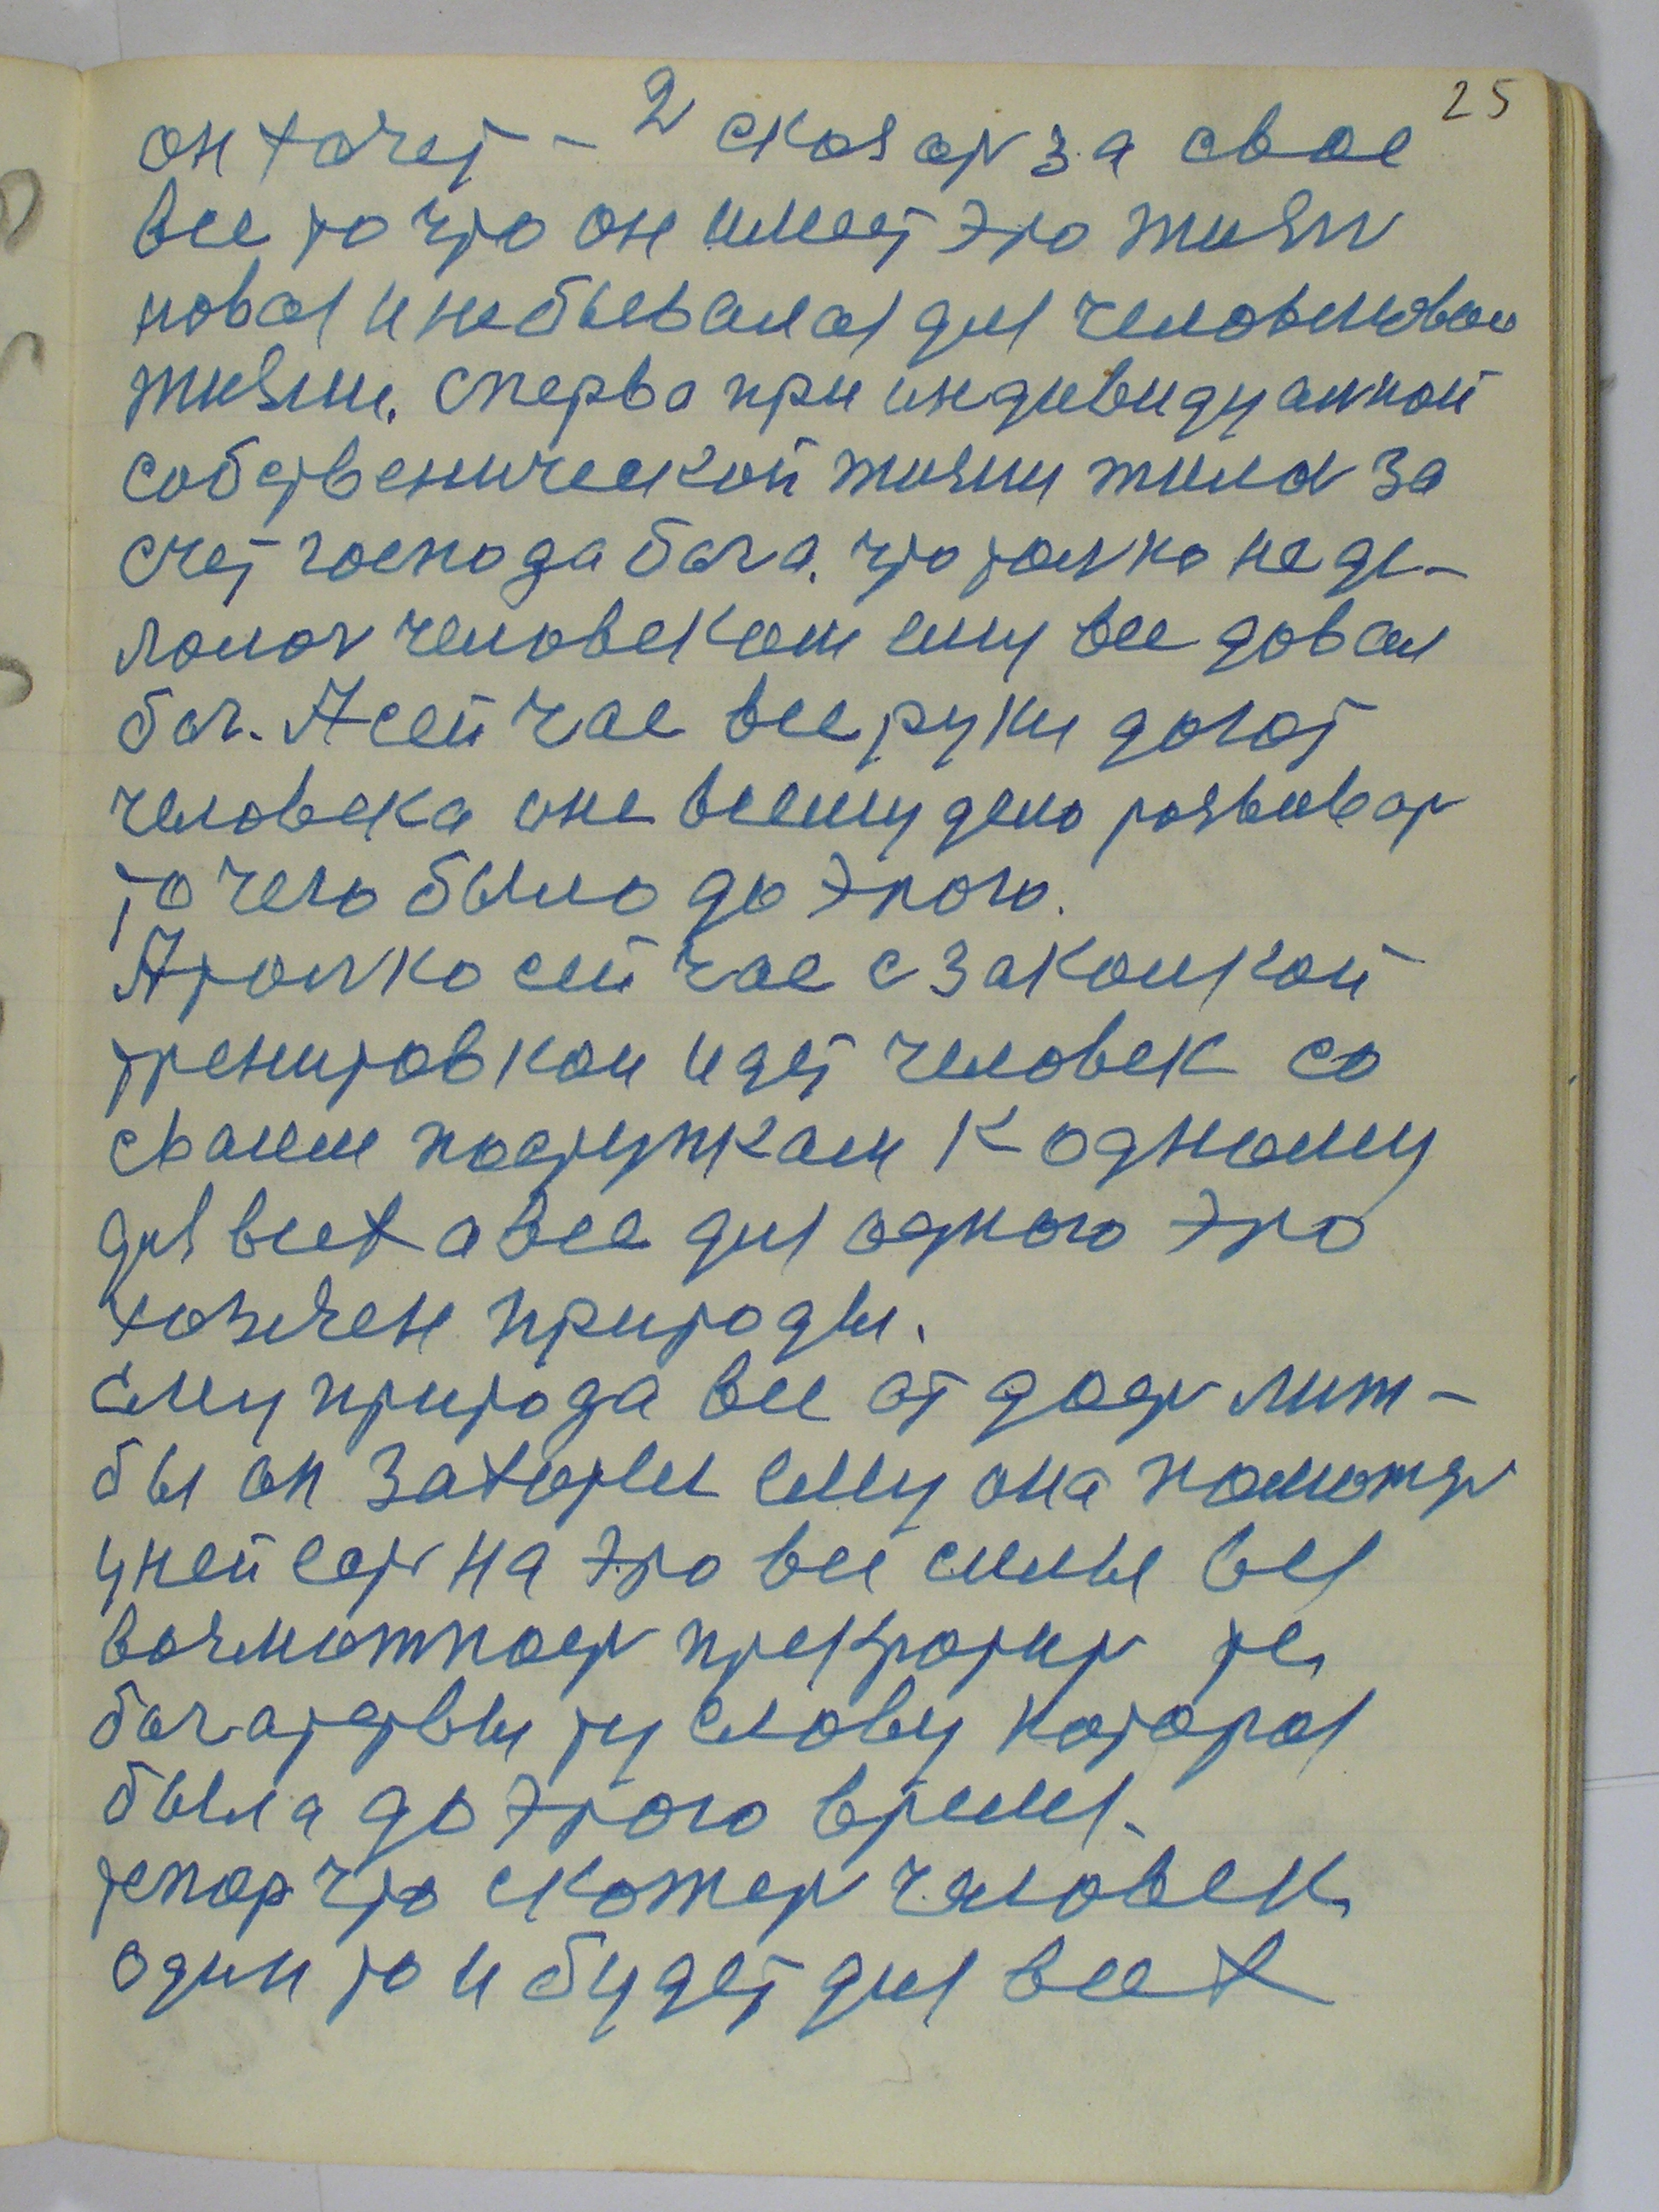 25
2
он хочет – сказать за свое
все то что он имеет это жизнь
новая и небывалая для человековой
жизни. сперва при индивидуалной
собственической жизни жила за
счет господа бога. что толко не де-
лалось человекам ему все довал
бог. А сейчас все руки
человека оне всему дело розвивать
то чего было до этого.
А толко сейчас с закалкой
тренировкои идет человек со
сваими поступками к одному
для всех а все для одного это
хозяен природы.
ему природа все отдасть лиж-
бы он захотел ему она поможеть
у ней есть на это все силы вся
возможность прекротить те
богатствы ту славу которая
была до этого время.
тепер что скожеть человек
один то и будет для всех